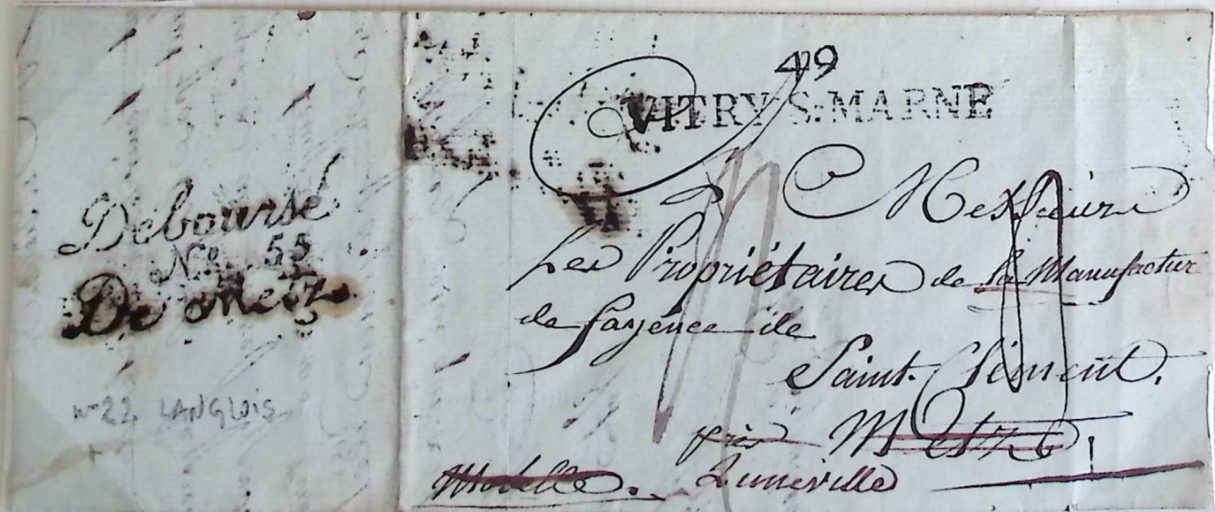 Debourse
No. 55
De Metz
no 22 LANGLOIS
49
VITRY-S-MARNE
Messieurs
Les Propriétaires de la Manufactur
de fayence de
Saint-Clément.
près Metz
Moselle. Luneville